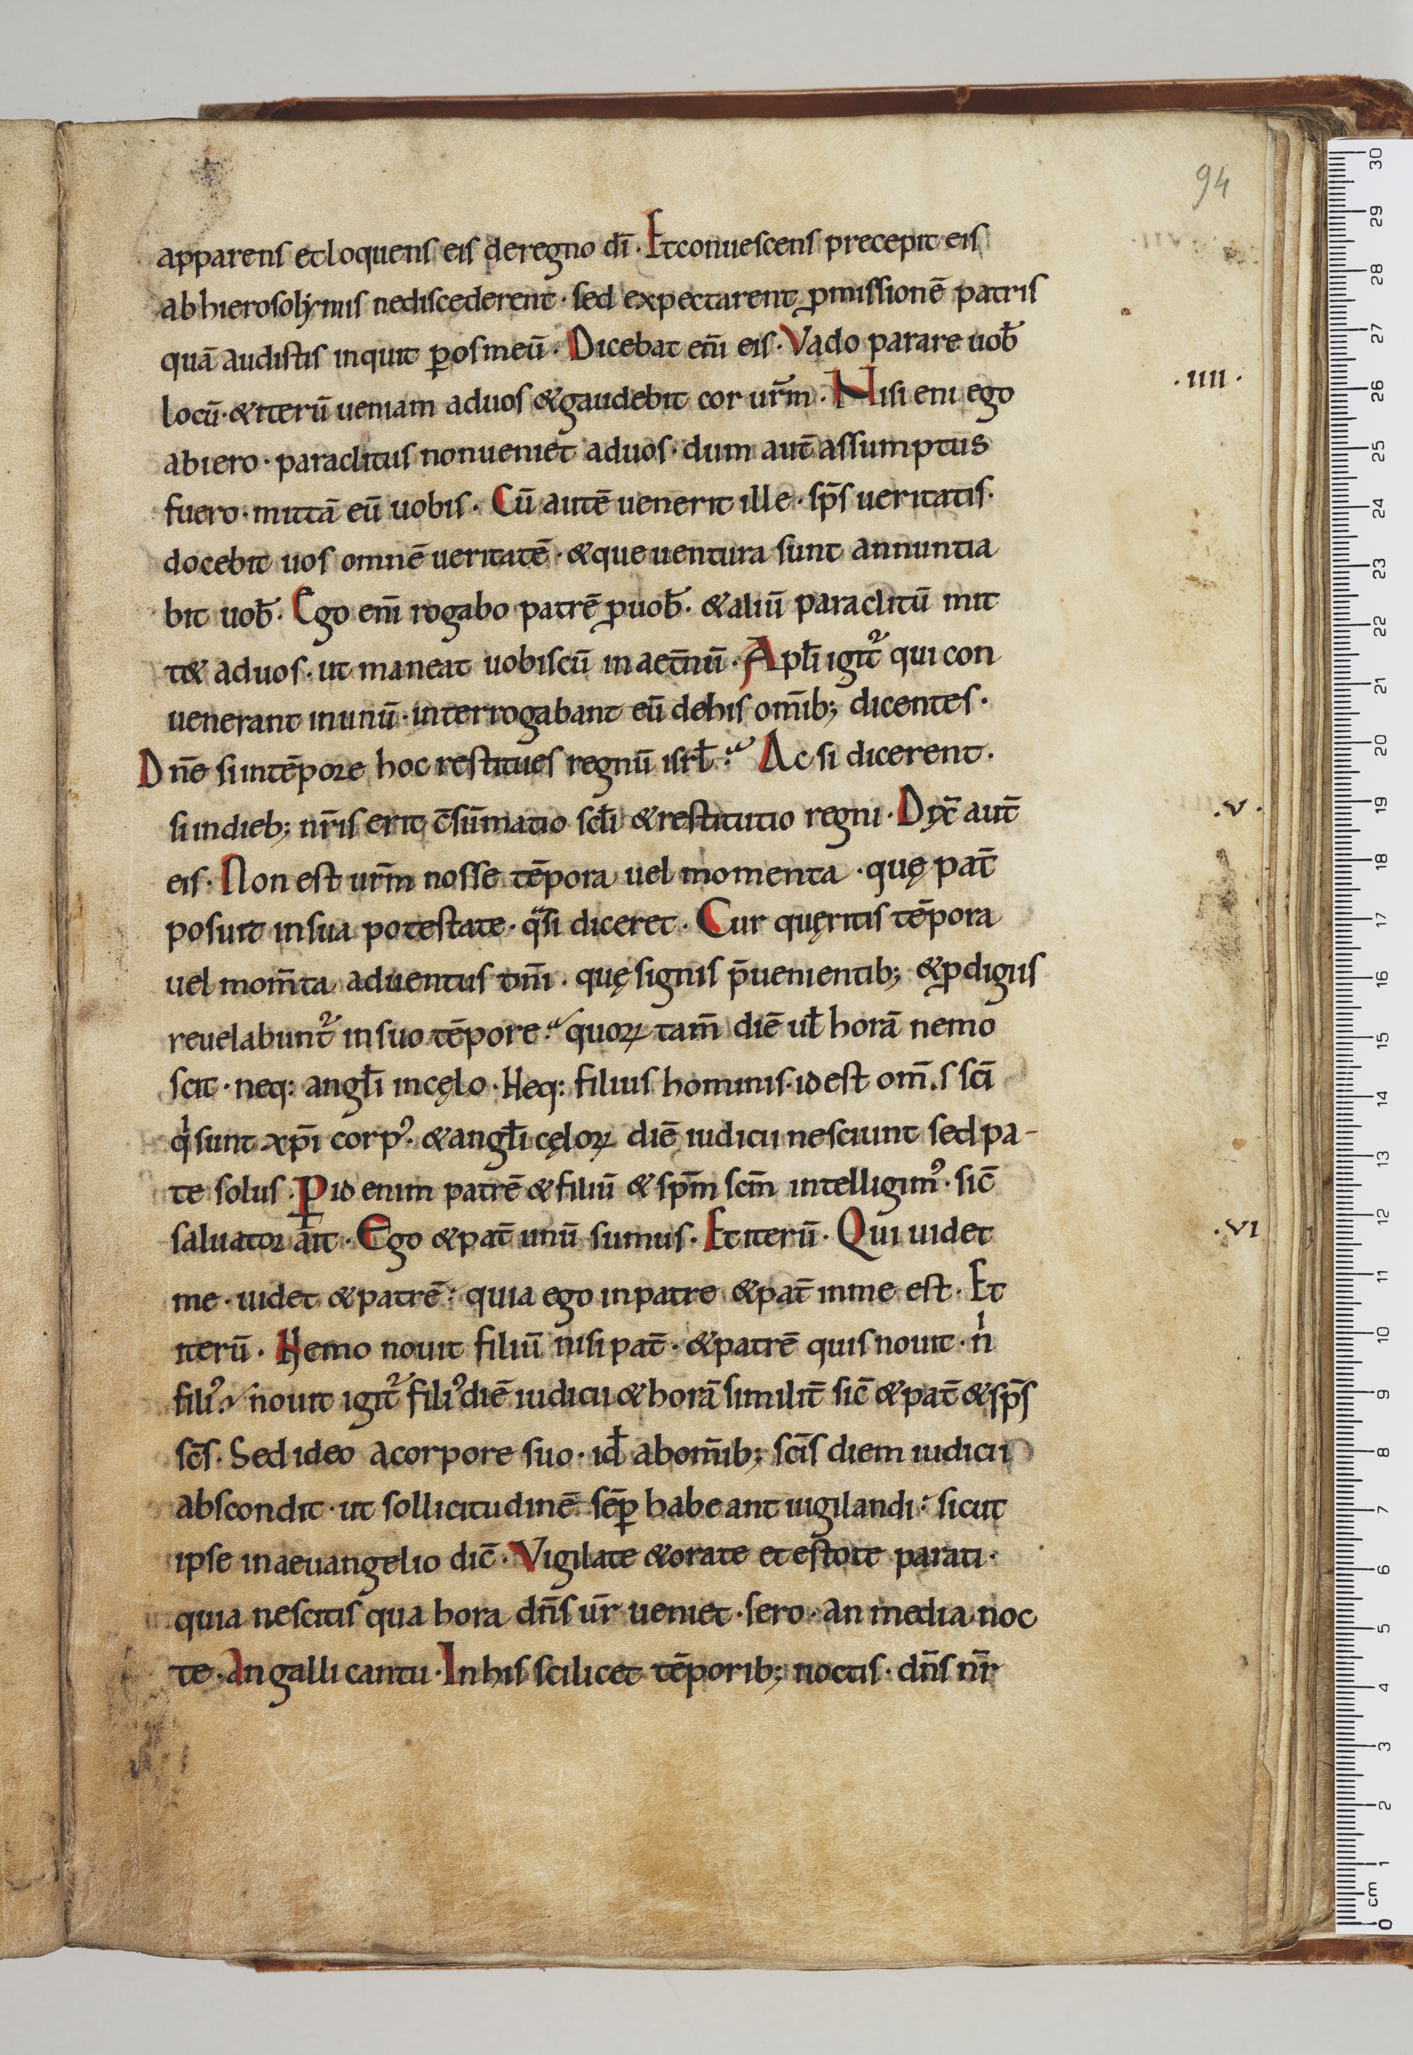 94
apparens et loquens eis de regno dī · Et conuescens precepit eis
ab hierosolymis ne discederent · sed expectarent ꝓmissionē patris
quā audistis inquit ꝑ os meū · Dicebat em̄ eis · Vado parare uob̄
·IIII·
locū · & iterū ueniam ad uos & gaudebit cor ur̄m · Nisi eni ego
abiero · paraclitus non ueniet ad uos · dum aut̄ assumptus
fuero · mittā eū uobis · Cū autē uenerit ille · sp̄s ueritatis ·
docebit uos omnē ueritatē · & que uentura sunt annuntia
bit uob̄ · Ego em̄ rogabo patrē ꝓ uob̄ · & aliū paraclitū mit
t& ad uos · ut maneat uobiscū in aet̄nū · Apl̄i igit᷑ qui con
uenerant in unū · interrogabant eū de his om̄ib; dicentes ·
Dn̄e si in tēpore hoc restitues regnū isrl̄ · Ac si dicerent ·
·V·
si in dieb; nr̄is erit c̄sūmatio scl̄i & restitutio regni · Dix̄ aut̄
eis · Non est ur̄m nosse tēpora uel momenta · quę pat̄
posuit in sua potestate · qͣsi diceret · Cur quęritis tēpora
uel mom̄ta aduentus dn̄i · quę signis p̄uenientib; & ꝓdigiis
reuelabunt᷑ in suo tēpore · quoꝝ tam̄ diē ul̄ horā nemo
scit · neq: angl̄i in cęlo · Neq: filius hominis · id est om̄s sc̄i
qͥ sunt xp̄i corpꝰ · & angl̄i cęloꝝ diē iudicii nesciunt sed pa-
te solus · P id enim patrē & filiū & sp̄m sc̄m intelligimꝰ · sic̄
·VI
saluator ait · Ego & pat̄ unū sumus · Et iterū · Qui uidet
me · uidet & patrē : quia ego in patre & pat̄ in me est · Et
iterū · Nemo nouit filiū nisi pat̄ · & patrē quis nouit · nͥ
filiꝰ · nouit igit᷑ filiꝰ diē iudicii & horā similit̄ sic̄ & pat̄ & sp̄s
sc̄s · Sed ideo a corpore suo · id̄ ab om̄ib; sc̄is diem iudicii
abscondit · ut sollicitudinē sēꝑ habeant uigilandi : sicut
ipse in aeuangelio dic̄ · Vigilate & orate et estote parati ·
quia nescitis qua hora dn̄s ur̄ ueniet · sero · an media noc
te · An galli cantu · In his scilicet tēporib; noctis · dn̄s nr̄